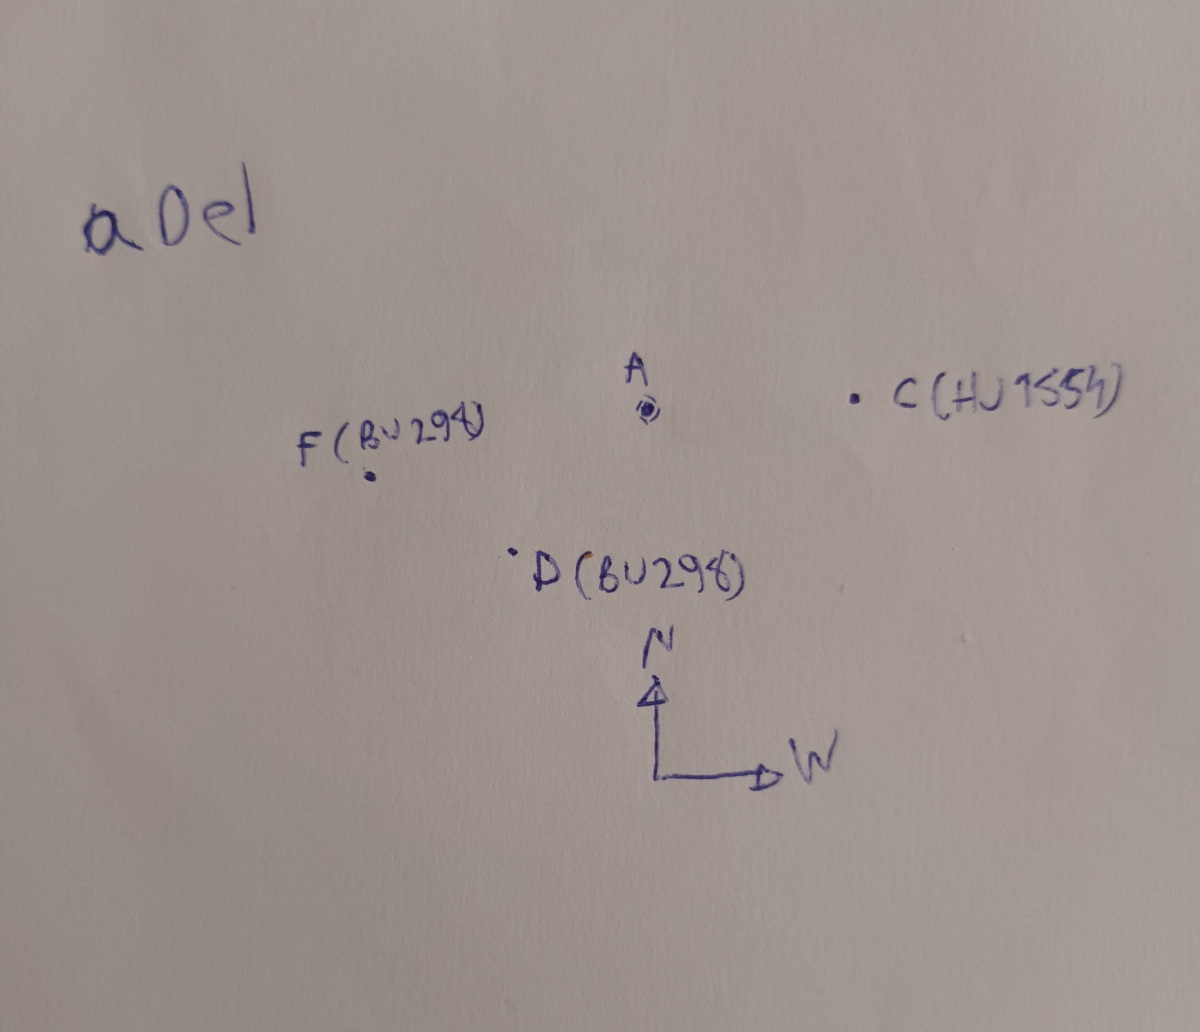 a Del
A
C (HJ 1554)
F (BU 298)
D (BU 298)
N
W